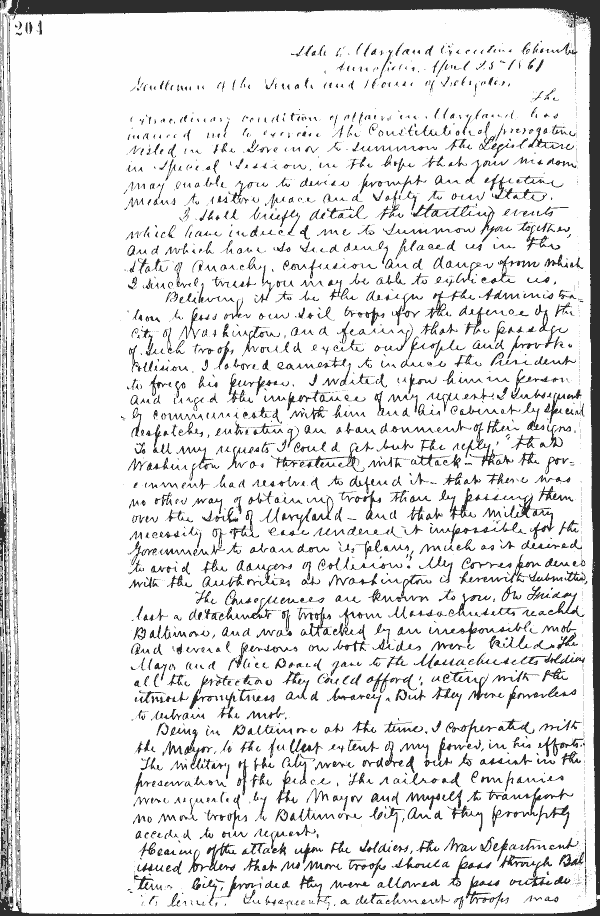 204
State of Maryland Executive Chamber
Annapolis, April 25th 1861
Gentlemen of the Senate and House of Delegates.
The
extraordinary condition of affairs in Maryland has
induced me to exercise the Constitutional prerogative
vested in the Governor to summon the Legislature
in Special Session, in the hope that your wisdom
may enable you to devise prompt and effective
means to restore peace and safety to our State.
I shall briefly detail the startling events
which have induced me to summon you together,
and which have so suddenly placed us in the
State of Anarchy, confusion and danger from which
I sincerely trust you may be able to extricate us.
Believing it to be the design of the Administra-
tion to pass over our soil troops for the defence of the
City of Washington, and fearing that the passage
of such troops would excite our people and provoke
Collision, I labored earnestly to induce the President
to forego his purpose. I waited upon him in person
and urged the importance of my request. I subsequent
ly communicated with him and his cabinet by special
despatches, entreating an abandonment of their designs.
To all my requests I could get but the reply, "that
Washington was threatened with attack - that the gov-
ernment had resolved to defend it - that there was
no other way of obtaining troops than by passing them
over the soil of Maryland - and that the military
necessity of the case rendered it impossible for the
Government to abandon its plans, much as it desired
to avoid the dangers of Collision." My correspondence
with the authorities at Washington is herewith submitted.
The Consequences are known to you. On Friday
last a detachment of troops from Massachusetts reached
Baltimore, and was attacked by an irresponsible mob
and several persons on both sides were killed. The
Mayor and Police Board gave to the Massachusetts soldiers
all the protection they could afford; acting with the
utmost promptness and bravery. But they were powerless
to restrain the mob.
Being in Baltimore at the time, I cooperated with
the Mayor, to the fullest extent of my power, in his efforts.
The military of the City were ordered out to assist in the
preservation of the peace. The railroad companies
were requested by the Mayor and myself to transport
no more troops to Baltimore City, and they promptly
acceded to our request.
Hearing of the attack upon the soldiers, the War Department
issued orders that no more troops should pass through Bal
timore City, provided they were allowed to pass outside
its limits. Subsequently, a detachment of troops was